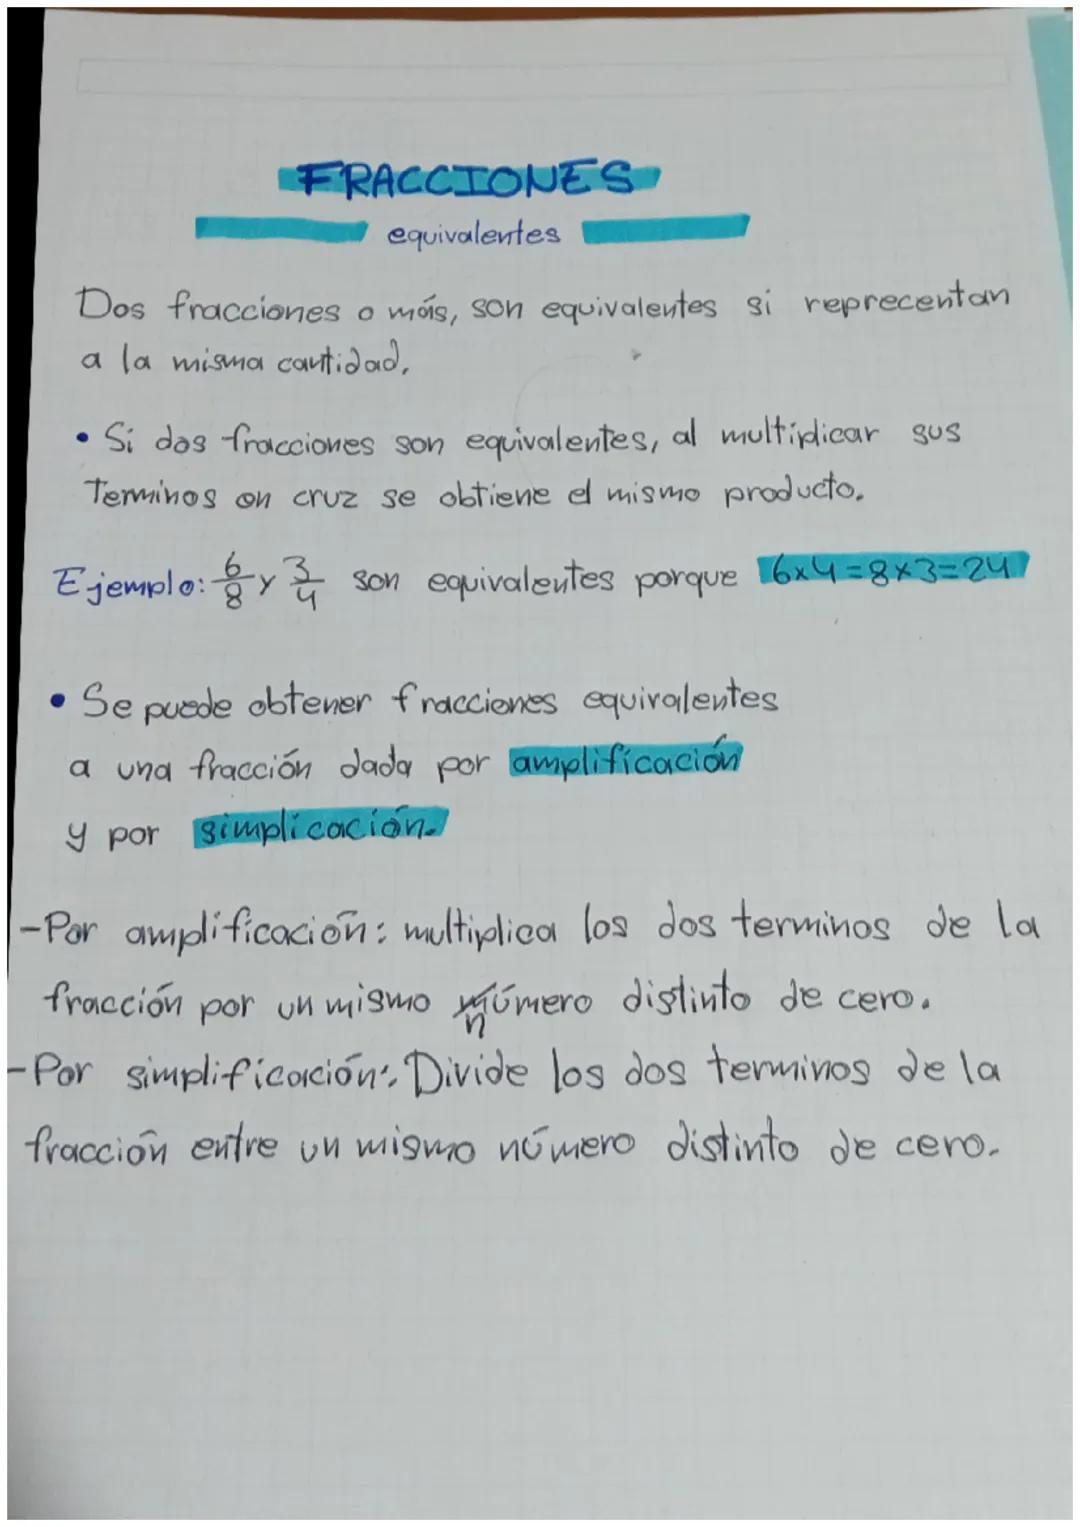 FRACCIONES
equivalentes
Dos fracciones o más, son equivalentes si reprecentan
a la misma cantidad.
• Si dos fracciones son equivalentes, al multiplicar sus
Terminos en cruz se obtiene el mismo producto.
Ejemplo: 6/8 y 3/4 son equivalentes porque 6x4=8x3=24
• Se puede obtener fracciones equivalentes
a una fracción dada por amplificación
y por simplicación.
-Por amplificación: multiplica los dos terminos de la
fracción por un mismo número distinto de cero.
-Por simplificación: Divide los dos terminos de la
fracción entre un mismo número distinto de cero.